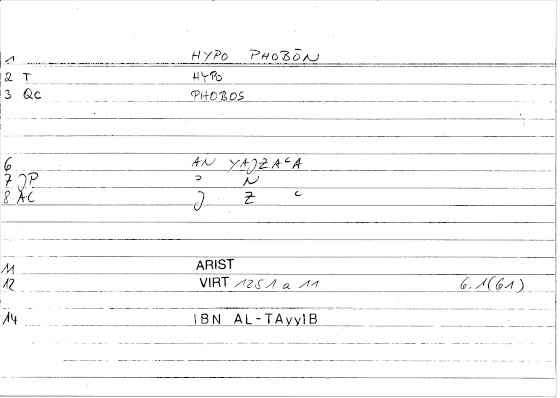 1 HYPO PHOBŌN
2 T HYPO
3 QC PHOBOS
6 AN YAJZAᶜA
7 JP ᵓ N
8 AC J Z ᶜ
11 ARIST
12 VIRT 1251 a 11 6.1(61)
14 IBN AL-TAyyIB